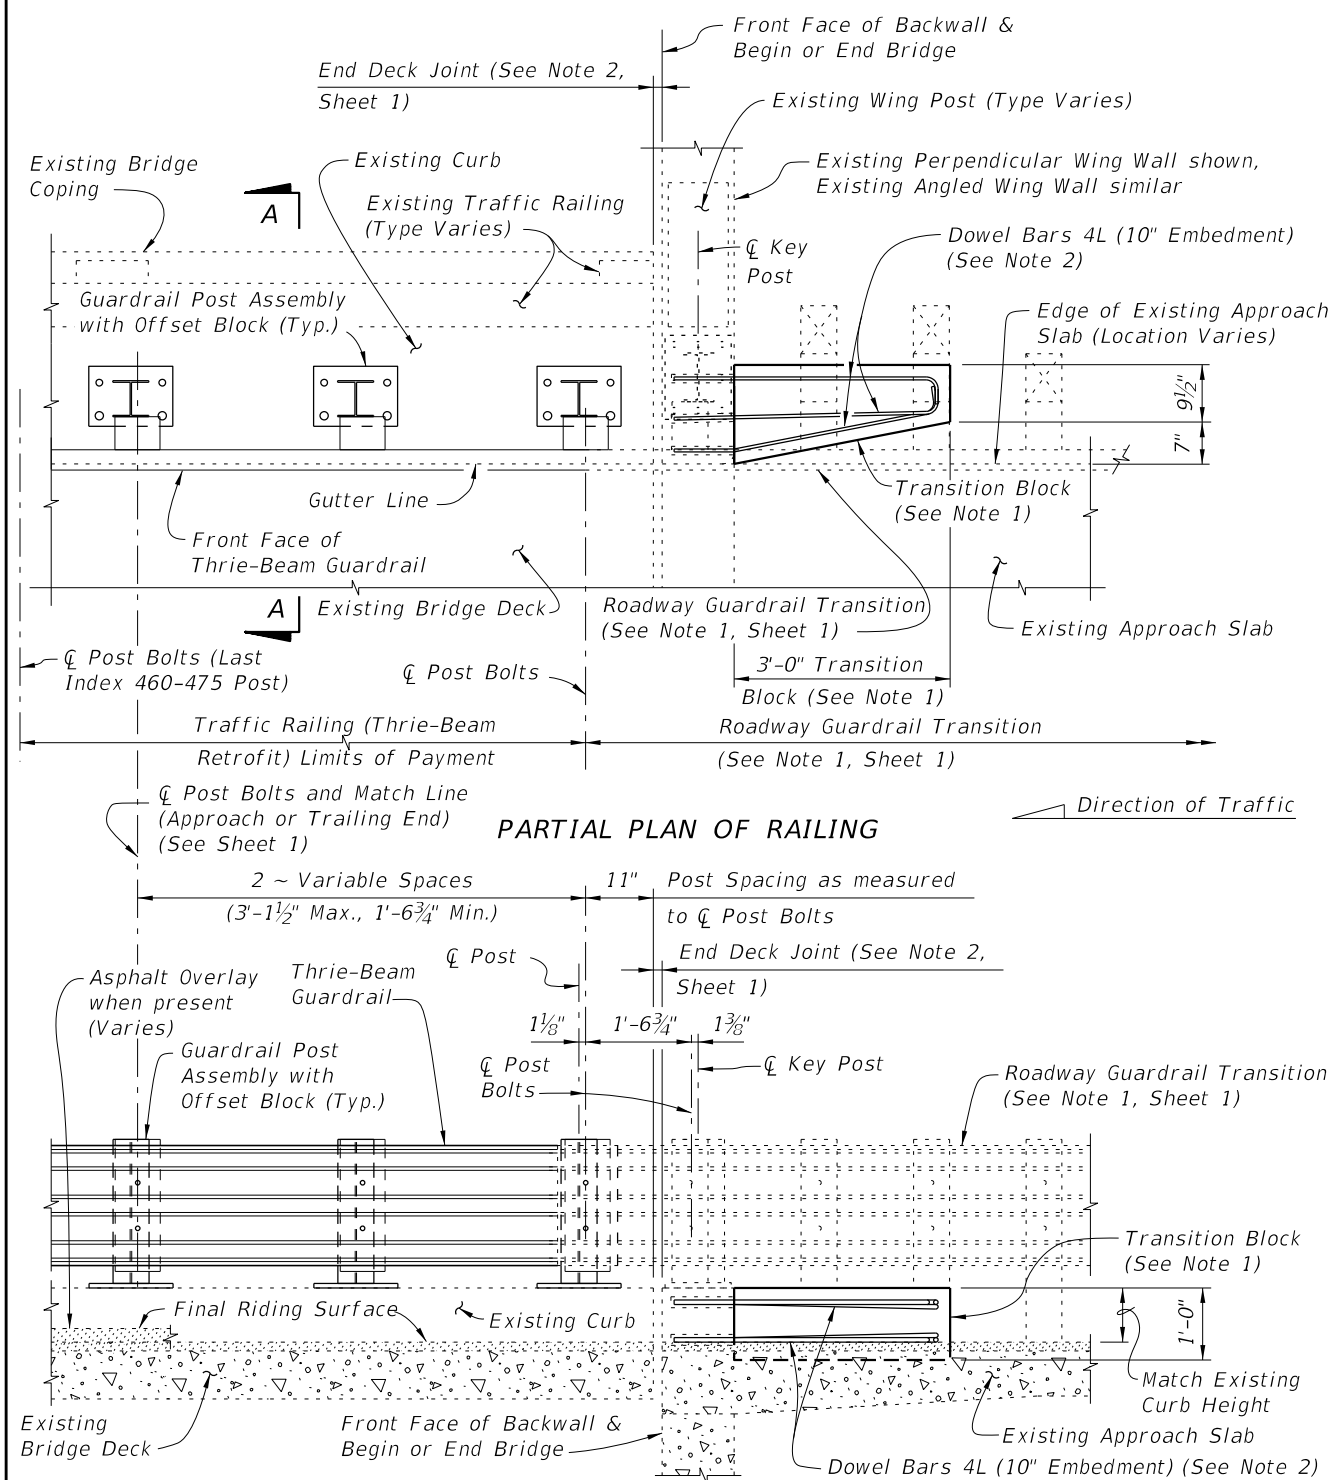 Front Face of Backwall &
Begin or End Bridge
End Deck Joint (See Note 2,
Sheet 1)
Existing Wing Post (Type Varies)
Existing Bridge
Coping
Existing Curb
Existing Perpendicular Wing Wall shown,
Existing Angled Wing Wall similar
A
Existing Traffic Railing
(Type Varies)
℄ Key
Post
Dowel Bars 4L (10" Embedment)
(See Note 2)
Guardrail Post Assembly
with Offset Block (Typ.)
Edge of Existing Approach
Slab (Location Varies)
9½"
7"
Gutter Line
Transition Block
(See Note 1)
Front Face of
Thrie-Beam Guardrail
A
Existing Bridge Deck
Roadway Guardrail Transition
(See Note 1, Sheet 1)
Existing Approach Slab
℄ Post Bolts (Last
Index 460-475 Post)
℄ Post Bolts
3'-0" Transition
Block (See Note 1)
Traffic Railing (Thrie-Beam
Retrofit) Limits of Payment
Roadway Guardrail Transition
(See Note 1, Sheet 1)
℄ Post Bolts and Match Line
(Approach or Trailing End)
(See Sheet 1)
Direction of Traffic
PARTIAL PLAN OF RAILING
2 ~ Variable Spaces
(3'-1½" Max., 1'-6¾" Min.)
11"
Post Spacing as measured
to ℄ Post Bolts
℄ Post
End Deck Joint (See Note 2,
Sheet 1)
Asphalt Overlay
when present
(Varies)
Thrie-Beam
Guardrail
1⅛"
1'-6¾"
1⅜"
Guardrail Post
Assembly with
Offset Block (Typ.)
℄ Post
Bolts
℄ Key Post
Roadway Guardrail Transition
(See Note 1, Sheet 1)
Transition Block
(See Note 1)
Final Riding Surface
Existing Curb
1'-0"
Match Existing
Curb Height
Existing
Bridge Deck
Front Face of Backwall &
Begin or End Bridge
Existing Approach Slab
Dowel Bars 4L (10" Embedment) (See Note 2)